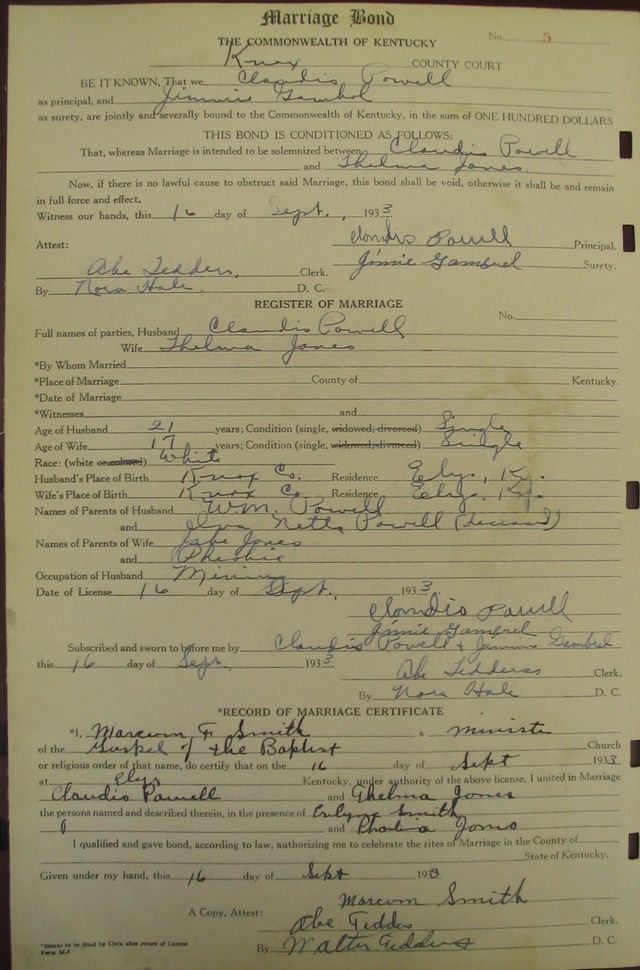 Marriage Bond
No. 5
THE COMMONWEALTH OF KENTUCKY
Knox COUNTY COURT
BE IT KNOWN, That we Claudis Powell
as principal, and Jimmie Gambrel
as surety, are jointly and severally bound to the Commonwealth of Kentucky, in the sum of ONE HUNDRED DOLLARS
THIS BOND IS CONDITIONED AS FOLLOWS:
That, whereas Marriage is intended to be solemnized between Claudis Powell
and Thelma Jones
Now, if there is no lawful cause to obstruct said Marriage, this bond shall be void, otherwise it shall be and remain
in full force and effect.
Witness our hands, this 16 day of Sept., 1933
Attest: Claudis Powell Principal.
Abe Tedders, Clerk. Jimie Gambrel Surety.
By Nora Hale. D. C.
REGISTER OF MARRIAGE
No.
Full names of parties, Husband Claudis Powell
Wife Thelma Jones
*By Whom Married
*Place of Marriage County of Kentucky.
*Date of Marriage
*Witnesses and
Age of Husband 21 years; Condition (single, widowed, divorced) Single
Age of Wife 17 years; Condition (single, widowed, divorced) Single
Race: (white or colored) White
Husband's Place of Birth Knox Co. Residence Elys, Ky.
Wife's Place of Birth Knox Co. Residence Elys, Ky.
Names of Parents of Husband Wm. Powell
and Netta Powell (deceased)
Names of Parents of Wife Jabe Jones
and
Occupation of Husband Mining
Date of License 16 day of Sept. 1933
Claudis Powell
Jimie Gambrel
Subscribed and sworn to before me by Claudis Powell & Jimmie Gambrel
this 16 day of Sept. 1933
Abe Tedders Clerk.
By Nora Hale D. C.
*RECORD OF MARRIAGE CERTIFICATE
*I, Marcum F Smith a Ministe
of the Gospel of the Baptist Church
or religious order of that name, do certify that on the 16 day of Sept 1933.
at Elys Kentucky, under authority of the above license, I united in Marriage
Claudis Powell and Thelma Jones
the persons named and described therein, in the presence of Smith
and Jones
I qualified and gave bond, according to law, authorizing me to celebrate the rites of Marriage in the County of
State of Kentucky.
Given under my hand, this 16 day of Sept 1933
Marcum Smith
A Copy, Attest: Abe Tedders Clerk.
By Walter Tedders D. C.
*Blanks to be filled by Clerk after return of License